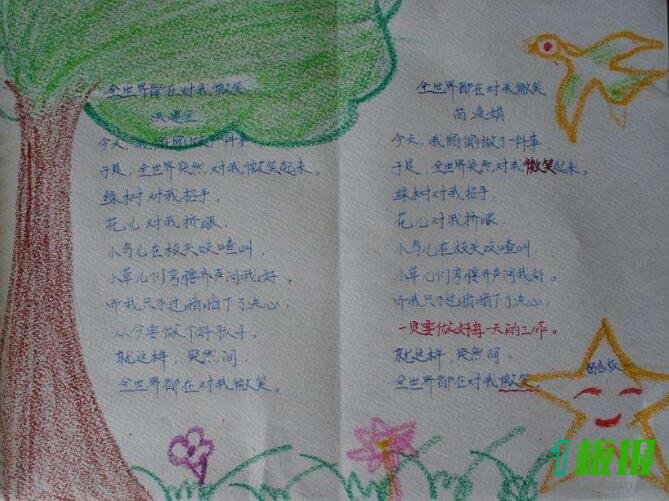 全世界都在对我微笑
今天，我悄悄做了一件事
于是，全世界突然，对我微笑起来。
绿树对我招手，
花儿对我挤眼，
小鸟儿在枝头吱喳叫，
小草儿们弯腰齐声问我好。
听我只不过暗暗下了决心：
从今要做个好孩子。
就这样，突然间，
全世界都在对我微笑。
全世界都在对我微笑
今天，我悄悄做了一件事，
于是，全世界突然，对我微笑起来。
绿树对我招手，
花儿对我挤眼，
小鸟儿在枝头吱喳叫，
小草儿们弯腰齐声问我好。
听我只不过暗暗下了决心：
一定要做好每一天的工作。
就这样，突然间，
全世界都在对我微笑。
板报